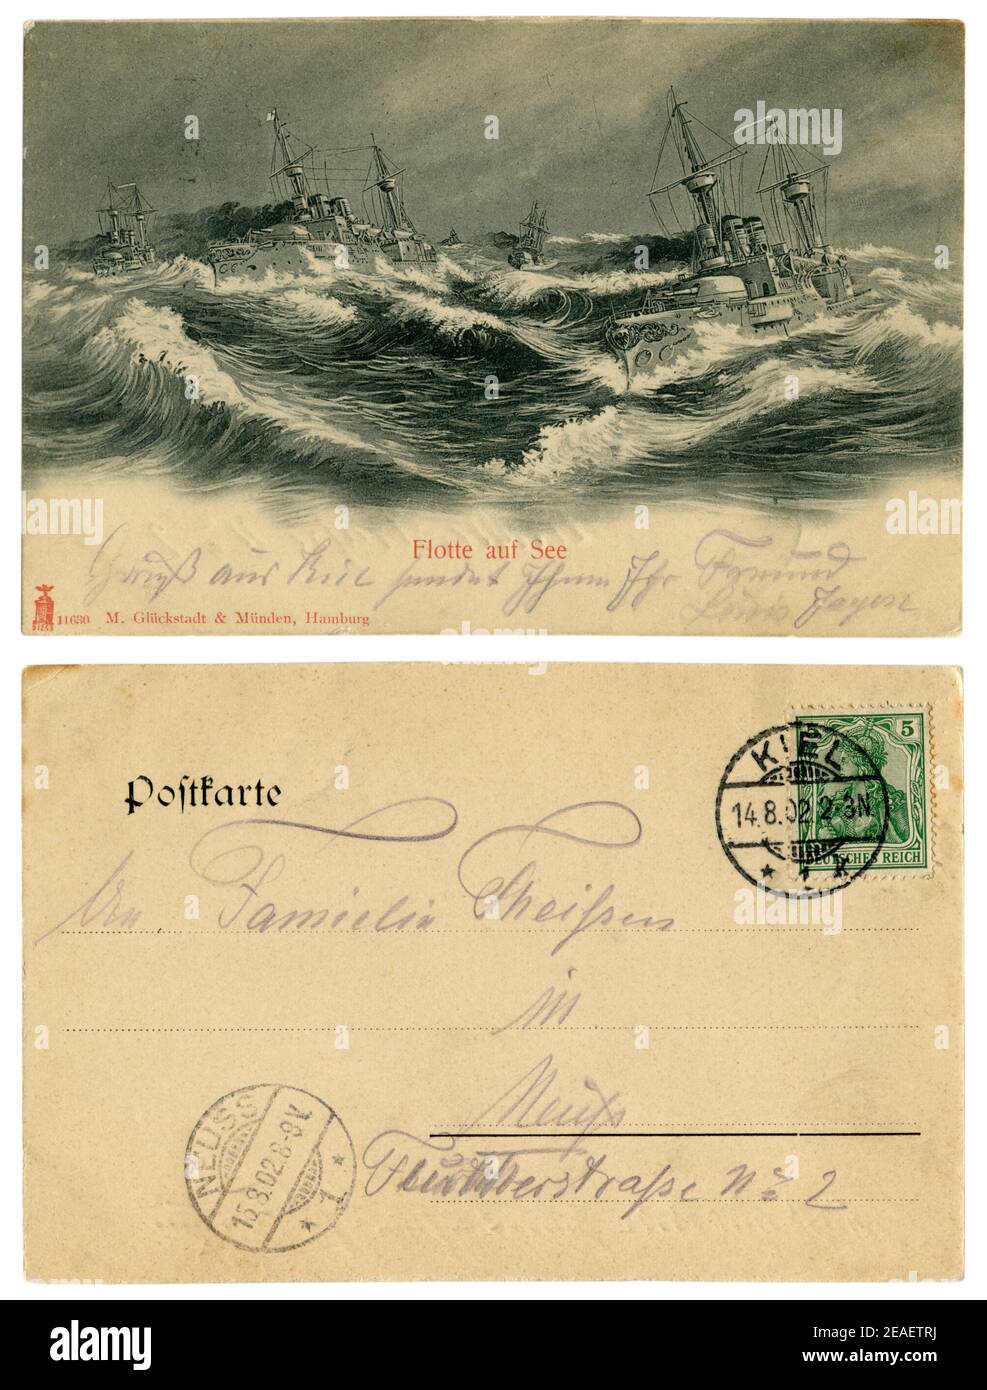 Flotte auf See
Gruß aus Kiel sendet Ihnen Ihr Freund
Louis
11630 M. Glückstadt & Münden, Hamburg
Poſtkarte
5
DEUTSCHES REICH
KIEL
14.8.02 2-3N
* 1 K
An Familie Theißen
in
Neuß
straße No 2
NEUSS
15.8.02.8-9V.
* 1 *
alamy
Image ID: 2EAETRJ
www.alamy.com